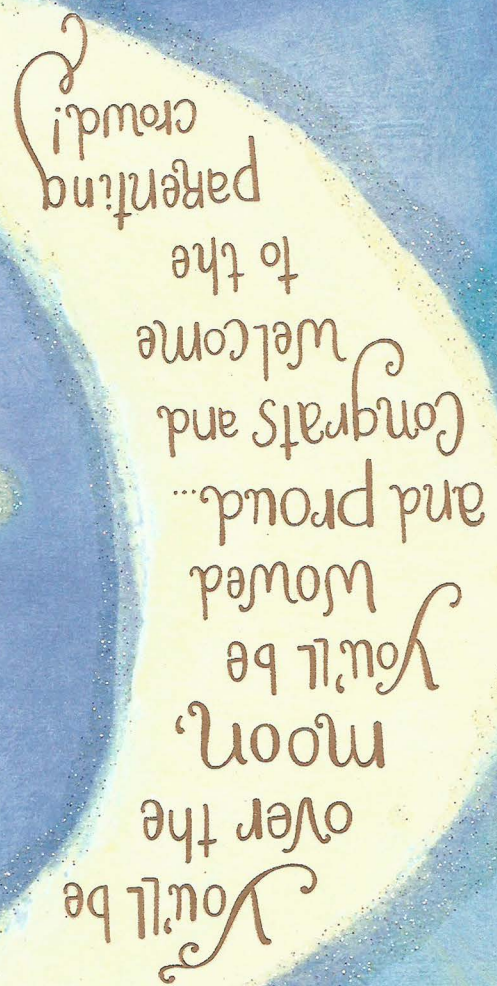 You'll be
over the
moon,
You'll be
wowed
and proud...
Congrats and
welcome
to the
parenting
crowd!